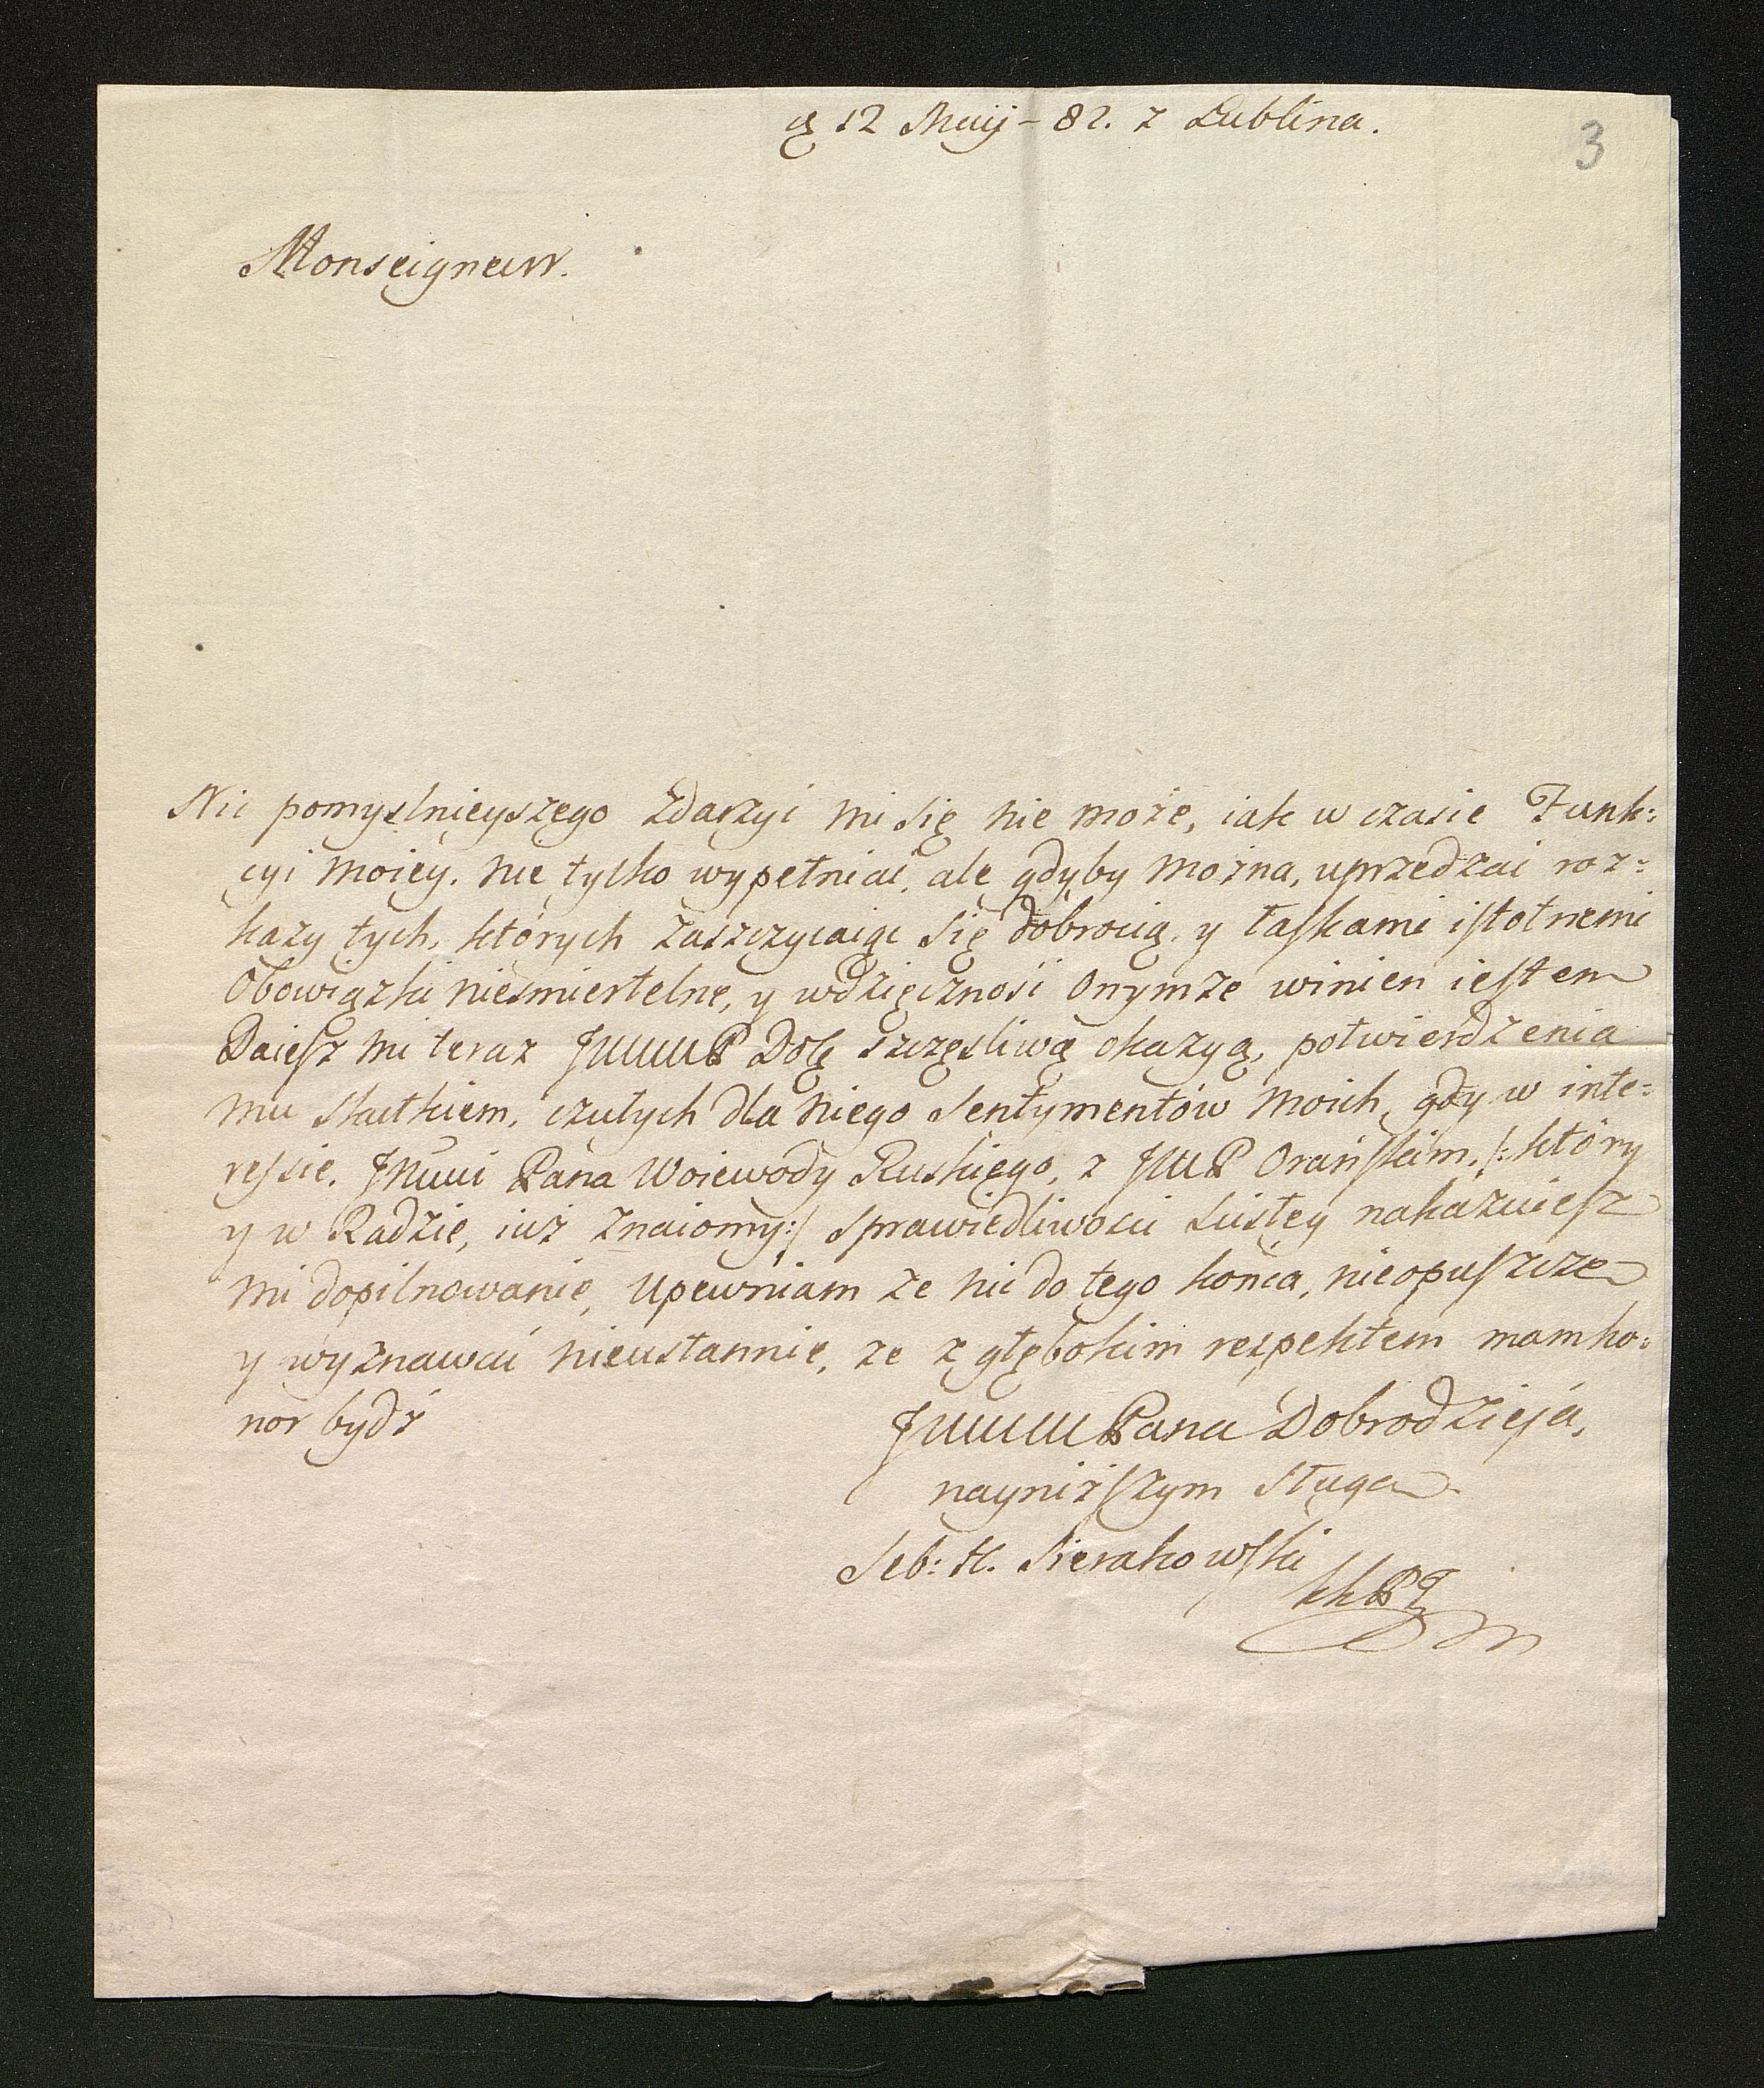 12 Maij - 82. z Lublina.
3
Monseigneur.
Nic pomyslnieyszego zdarzyć mi się nie może, iak w czasie Funk:
cyi moiey. nie tylko wypełniać, ale gdyby można, uprzedzać roz=
kazy tych, których zaszczycaiąc się dobrocią, y łaskami istotnemi
Obowiązki nieśmiertelne, y wdzięcznośi Onymże winien iestem
Daiesz mi teraz JWWMP Dobę szczęśliwą okazyą, potwierdzenia
mu skutkiem, czułych dla niego Sentymentów moich, gdy w inte=
ressie. JMWci Pana Woiewody Ruskiego, z JMP Orańskim. /: który
y w Radzie, iuż znaiomy :/ sprawiedliwości Sistey nakazuiesz
mi dopilnowanie, Upewniam że nic do tego końca, nieopuszcze
y wyznawać nieustannie, że z głębokim respektem mam ho=
nor bydź
JWWMM Pana Dobrodzieja,
nayniższym sługa
Seb: H. Sierakowski